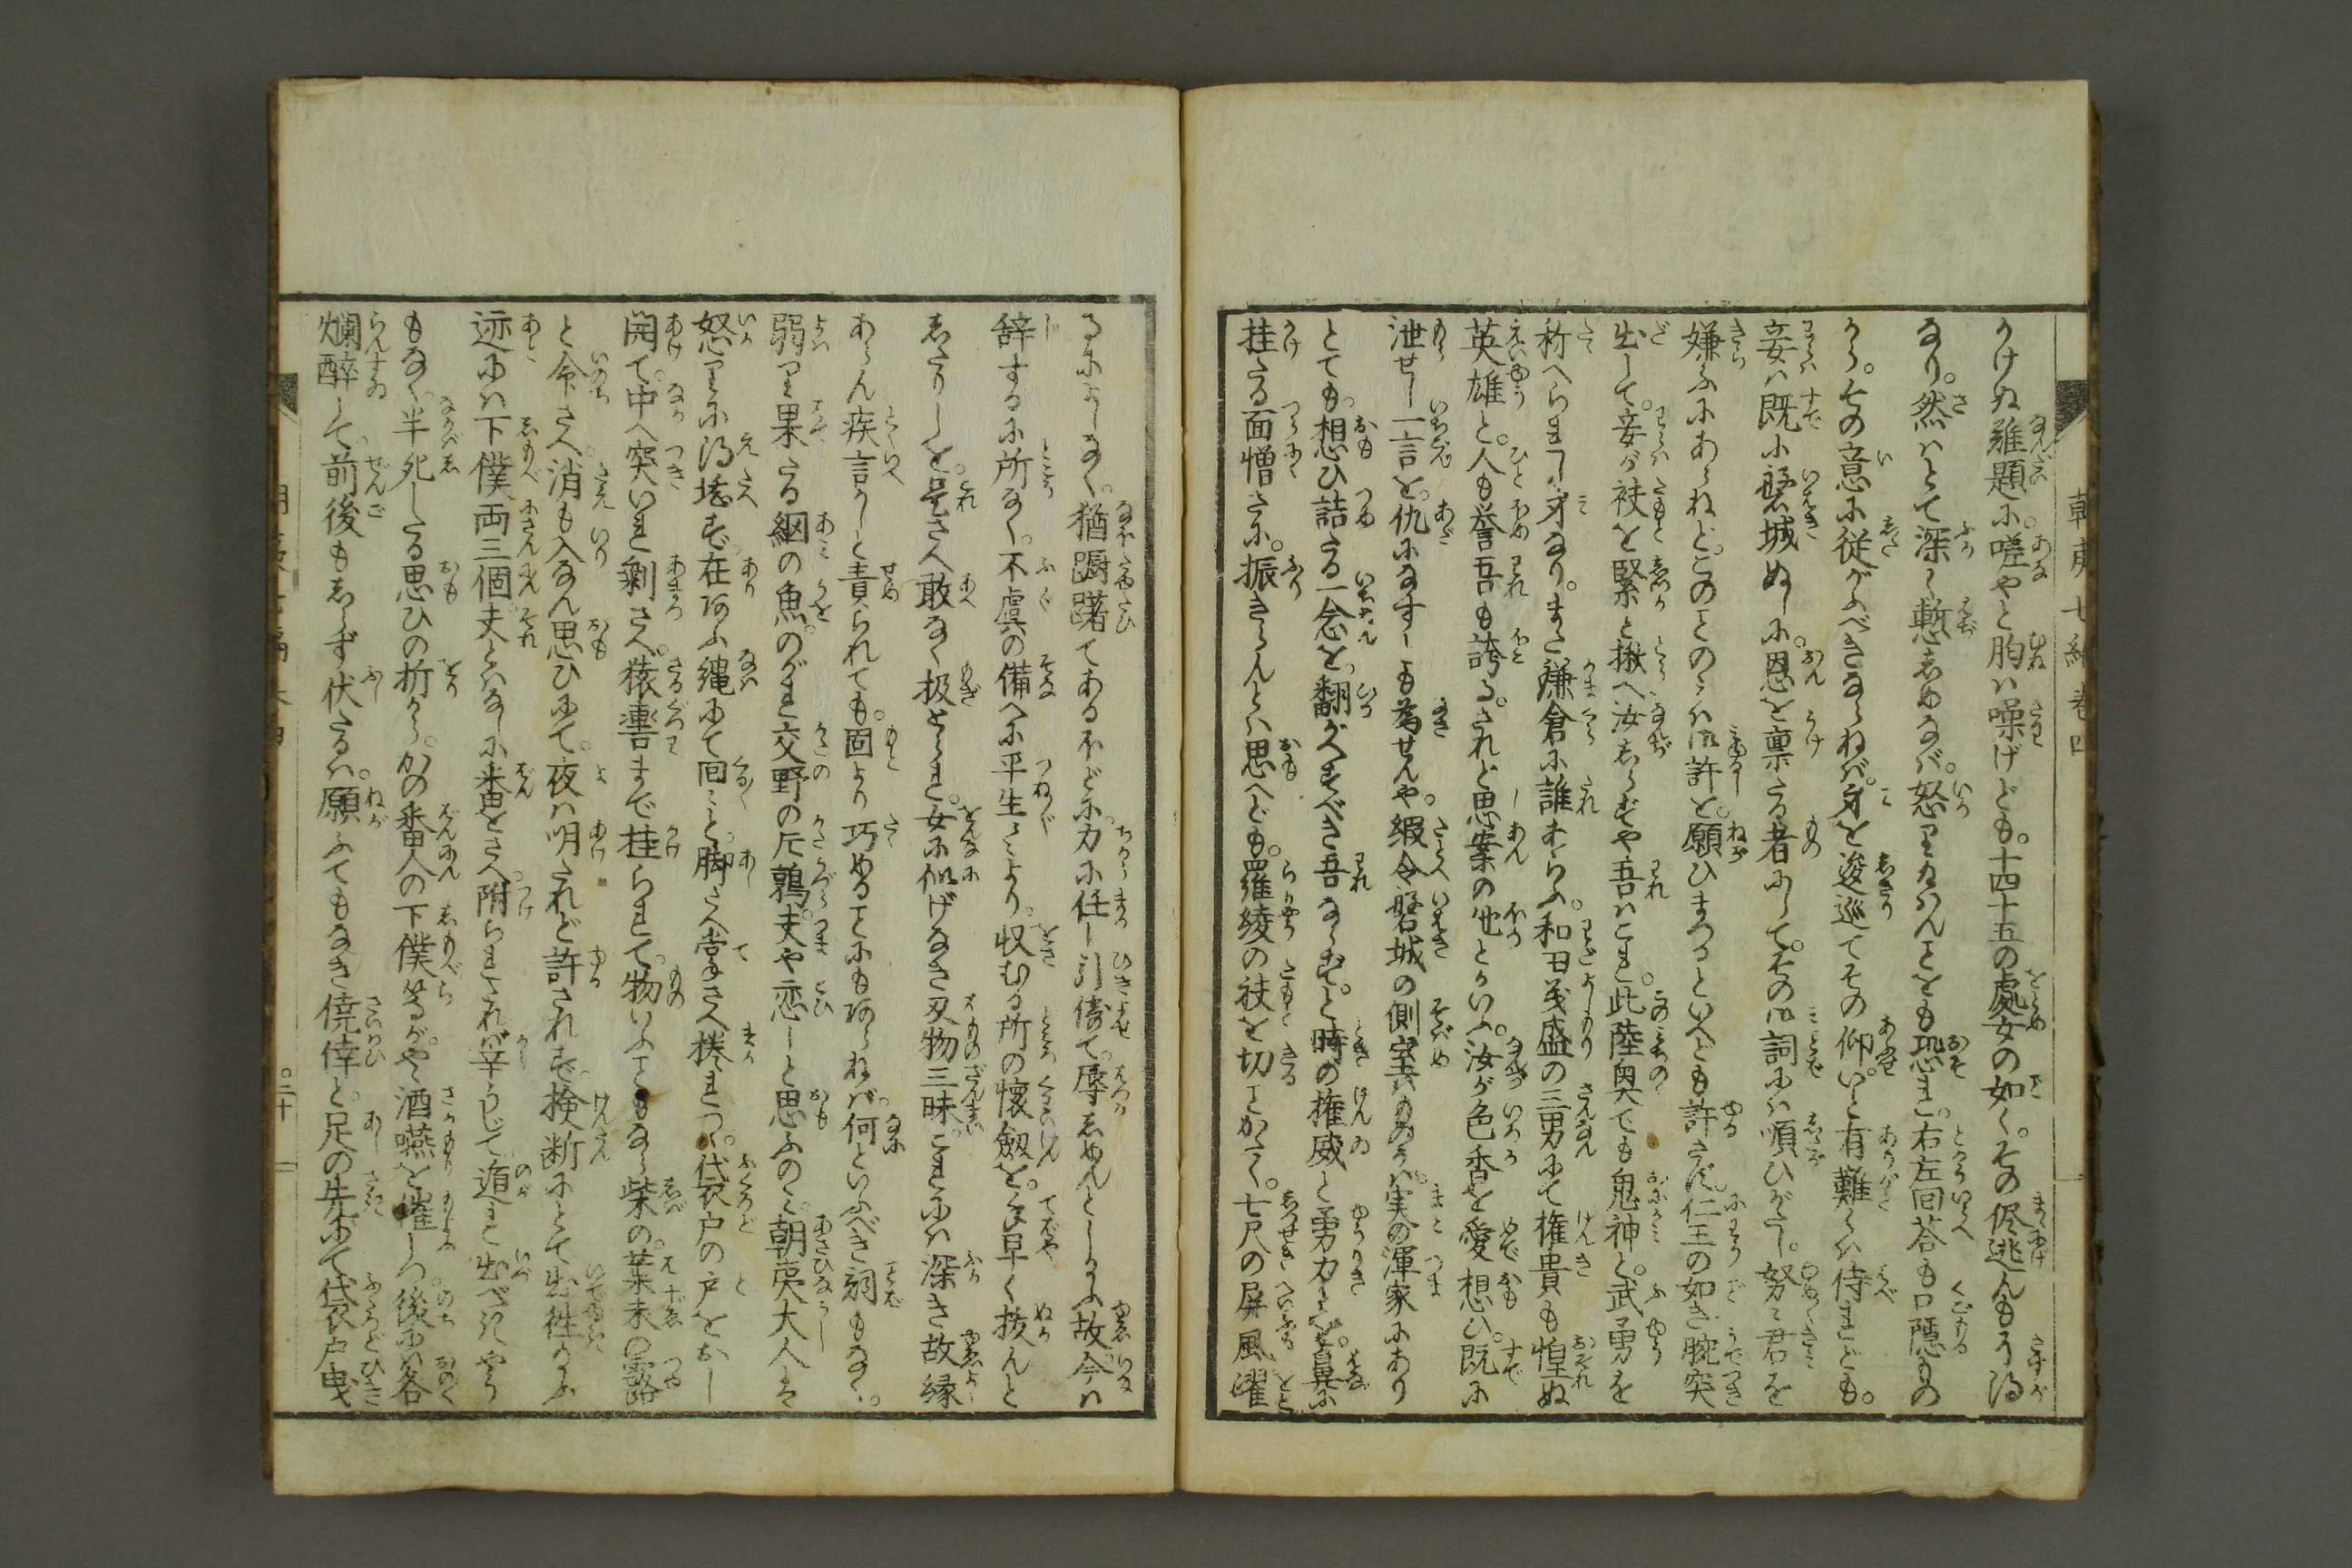 朝夷七編巻四
かけぬ難題に。嗟やと胸は噪げども。十四十五の處女の如く。その侭逃んもうち得
なり。然はとて深く慙しめなば。怒りなんことをも恐れ。右左回答も口隠もの
から。その意に従がふべきならねば。身を逡巡てその仰い。と有難くは侍れども。
妾は既に磐城ぬしに。恩を稟たる者にして。その御詞には順ひがたし。努々君を
嫌ふにあらねど。このことのみは御許と。願ひまつるといへども許さず。仁王の如き腕突
出して。妾が袂を緊と揪へ汝しらずや吾はこれ。此陸奥でも鬼神と。武勇を
称へられし身なり。また鎌倉に誰あらふ。和田義盛の三男にて権貴も惶ぬ
英雄と。人も誉吾も誇る。されど思案の他とかいふ。汝が色香を愛想ひ。既に
泄せし一言を。仇になすしも為せんや。縦令磐城の側室なりとも。実の渾家にあり
とても。想ひ詰たる一念を。翻がへすべき吾ならず。と時の権威と勇力を。鼻に
挂たる面憎さに。振きらんとは思へども。羅綾の袂を切てかたく。七尺の屏風濯
るによしなく。猶躊躇てあるほどに。力に任し引倚て。辱しめんとしたる故今は
辞するに所なく。不虞の備へに平生々より。収むる所の懐劔を。手早く抜んと
したりしを。是さへ敢なく扱とられ。女に似げなき刃物三昧。これには深き故縁
あらん疾言かしと責られても。固より巧めることにも阿らねば。何といふべき詞もなく。
弱り果たる網の魚。のがれ交野の片鶉。夫や恋しと思ふのみ。朝夷大人は
怒りに得堪ず。在阿ふ縄にて囘々と。脚さへ掌さへ捲れつ。袋戸の戸をおし
開て。中へ突いれ剰さへ。猿轡まで挂られて。物いふこともなら柴の。葉末の露
と命さへ。消も入なん思ひにて。夜は明されど許されず。検断にとて出往給ふ
迹には下僕両三個。夫とはなしに番をさへ。附られされば辛うじて遁れ出べきやう
もなく。半死したる思ひの折から。かの番人の下僕等が。や酒嚥を催しつ後には各
爛酔して。前後もしらず伏たるは。願ふてもなき僥倖と。足の先にて袋戸曳
〇三十